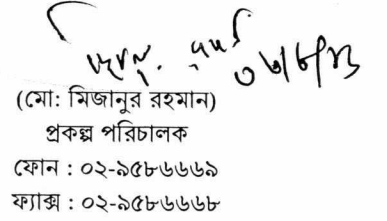 (মো: মিজানুর রহমান)
প্রকল্প পরিচালক
ফোন : ০২-৯৫৮৬৬৬৯
ফ্যাক্স : ০২-৯৫৮৬৬৬৮